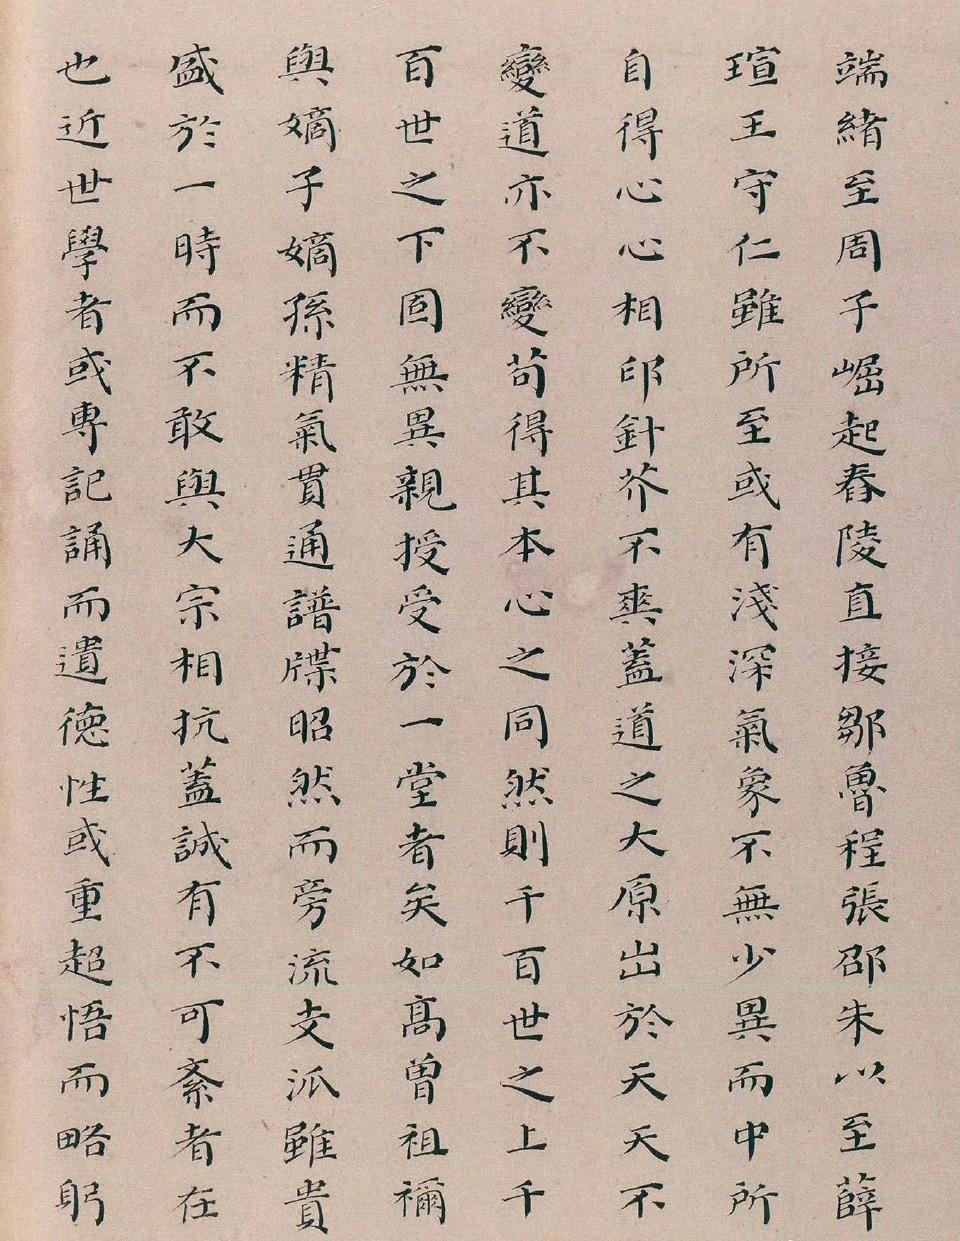 端緒至周子崛起舂陵直接鄒魯程張邵朱以至薛
瑄王守仁雖所至或有淺深氣象不無少異而中所
自得心心相印針芥不爽蓋道之大原出於天天不
變道亦不變苟得其本心之同然則千百世之上千
百世之下固無異親授受於一堂者矣如高曾祖禰
與嫡子嫡孫精氣貫通譜牒昭然而旁流支派雖貴
盛於一時而不敢與大宗相抗蓋誠有不可紊者在
也近世學者或專記誦而遺德性或重超悟而略躬